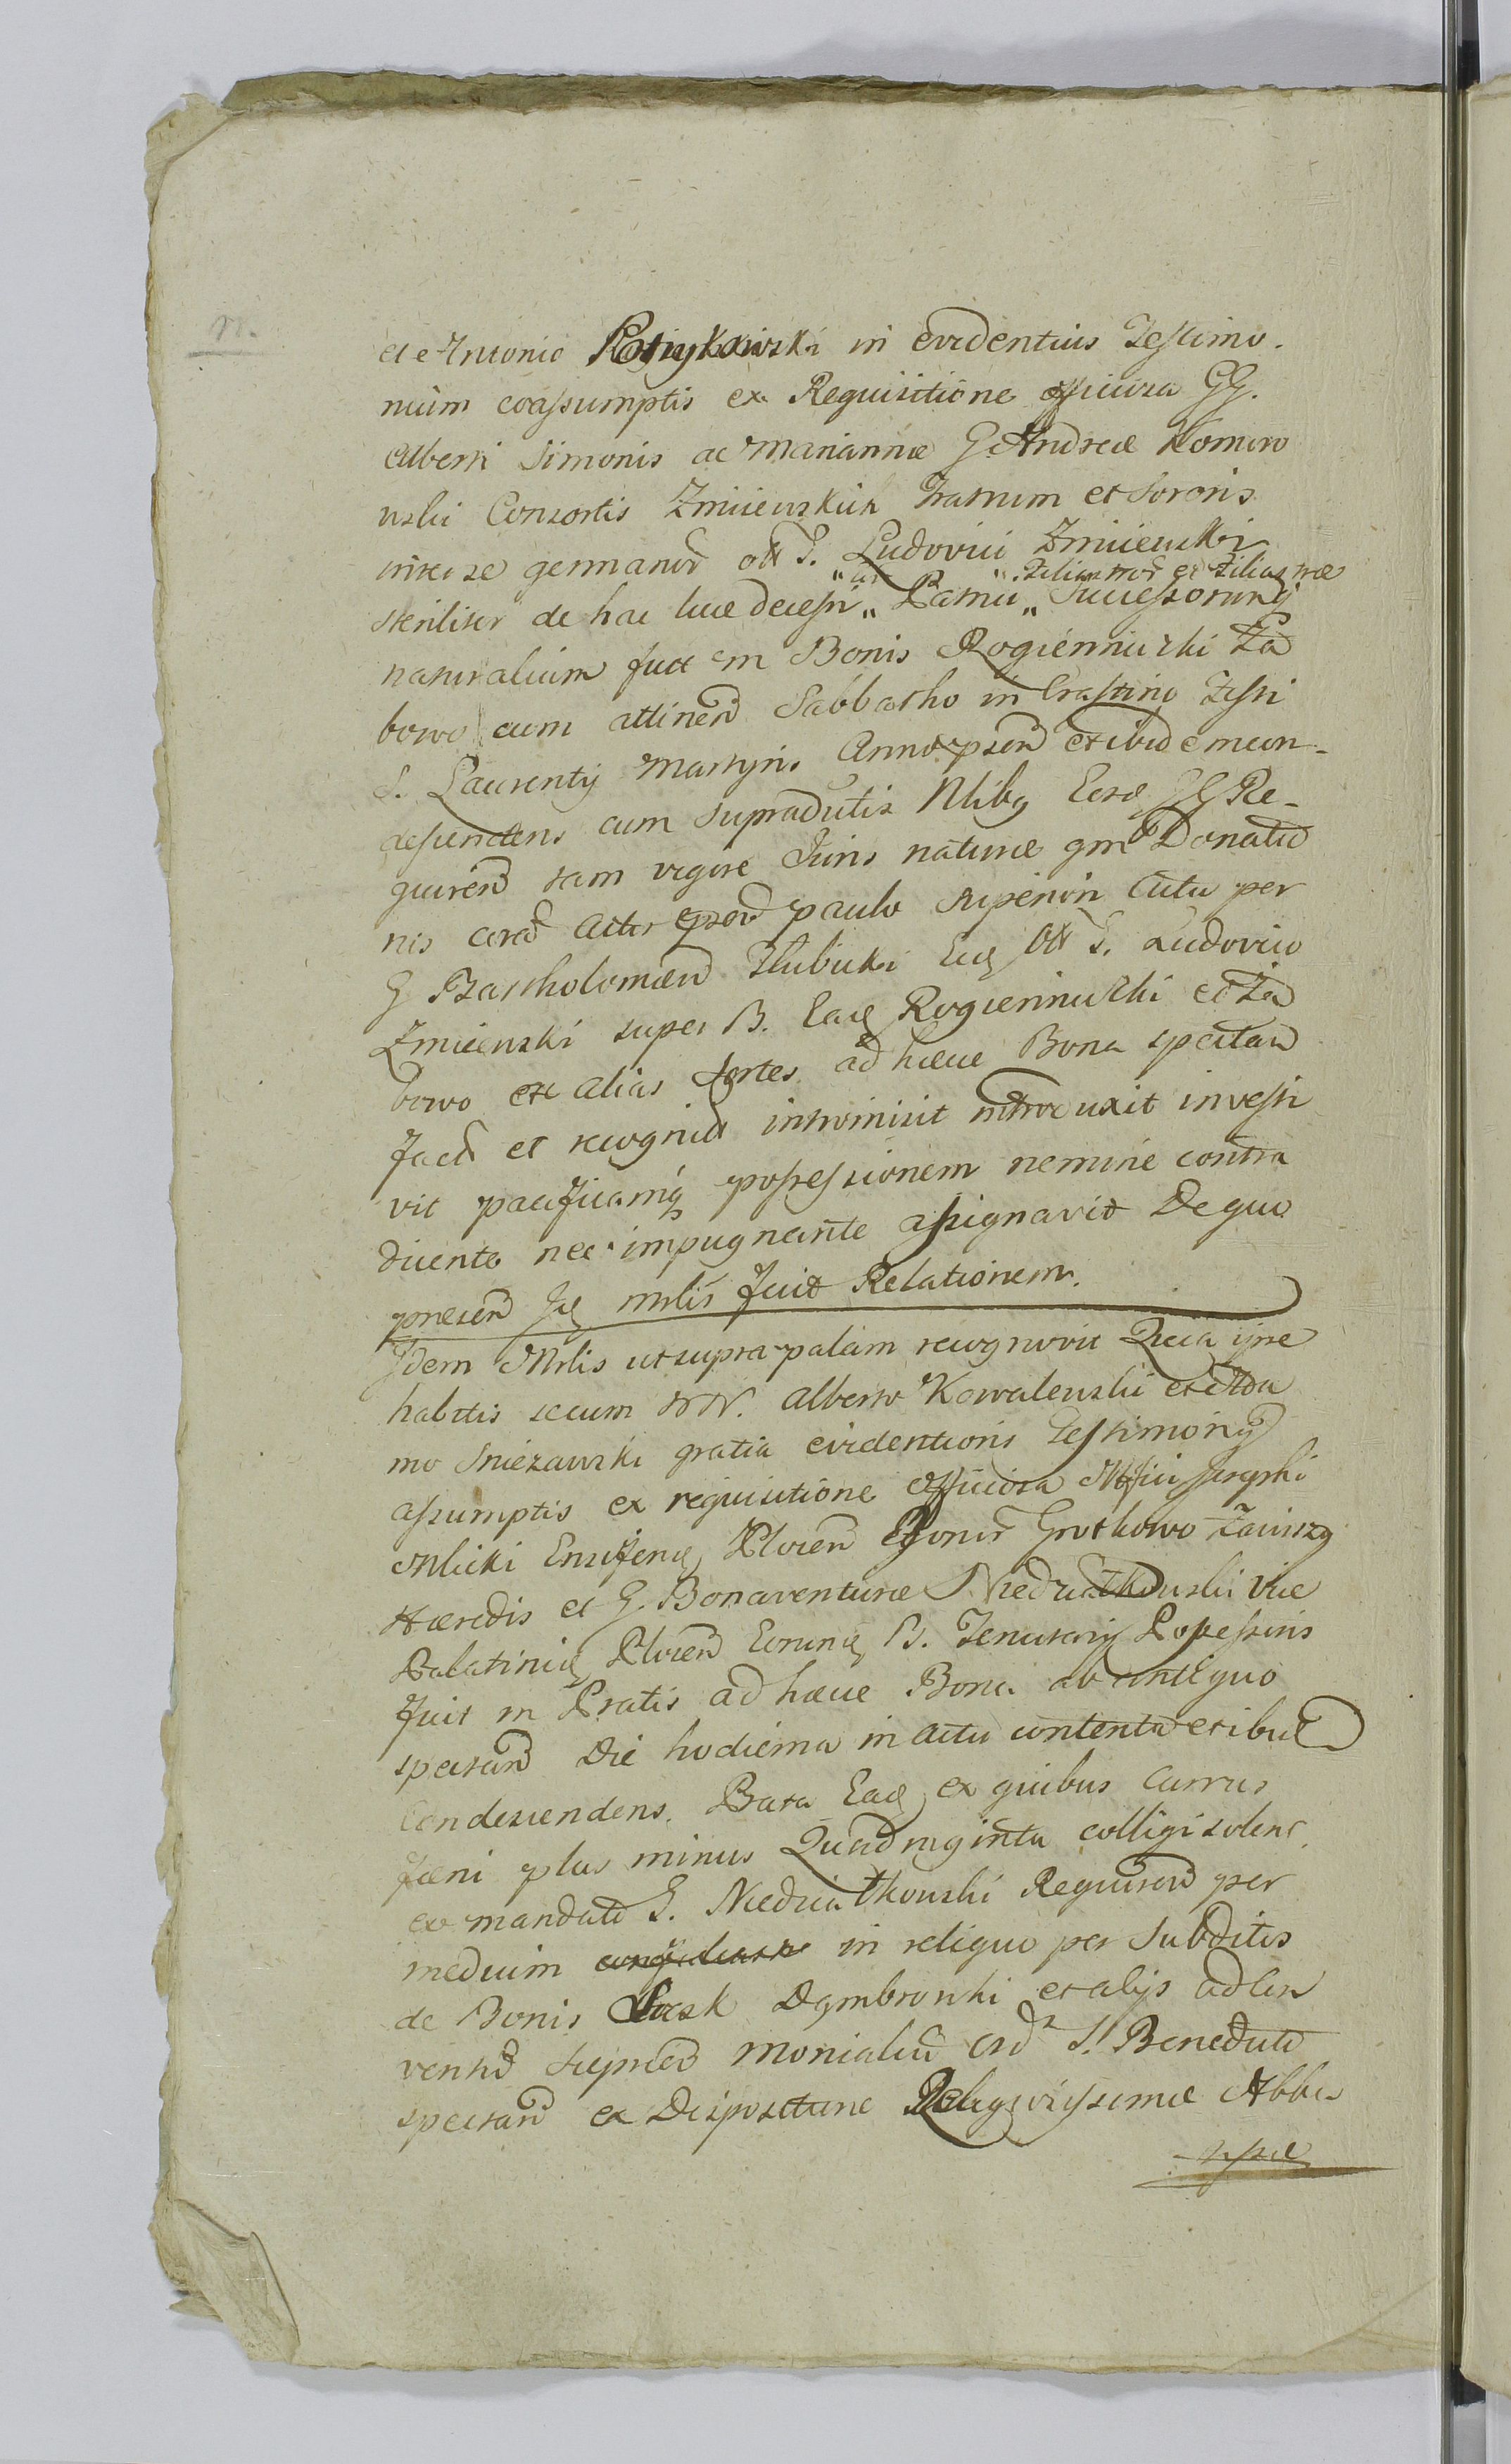 et Antonio in evidentius Testimo.
nium coassumptis ex Requisitione officiosa GG.
Alberti Simonis ac Mariannæ G. Andreæ Komoro
wski Consortis Zmiiewskich Fratrum et Sororis
inter se germanor olt G. Ludovici Zmiiewski
steriliter de hac luce decessi „ ac Patrui „ Filiastror et Filiastræ Successorumq
naturalium fuit in Bonis Rogienniczki Ła
bowo cum attinen Sabbatho in Crastino Festi
S. Laurentij Martyris Anno psen et ibid emcon-
descendens cum supradictis Nlibq Eosd GG Re-
quiren tam vigore Juris naturæ qm Donatio
nis corā Actis psen paulo superius Actu per
G Bartholomæū Hubicki Eiq olt G. Ludovico
Zmiiewski super B. Eaq Rogienniczki et Ła
bowo et alias sortes ad hæce Bona spectan
fact et recognit intromisit introduxit investi
vit pacificamq possessionem nemine contra
dicente nec impugnante assignavit De quo
presen Iq mlis fecit Relationem.
Idem Mlis ut supra palam recognovit Quia ipse
habitis secum NN. Alberto Kowalewski et Ada
mo Sniezawski gratia evidentioris Testimonij
assumptis ex requisitione officiosa Mffici
Mlicki Ensiferi Plocen Bonor Grotkowo
Hæredis et G. Bonaventuræ Niedziałkowski Vice
Palatiniq Plocen Eorunq B. Tenutarij Possessoris
fuit in Pratis ad hæce Bona ab antiquo
spectan Die hodierna in Actu contenta et ibid
Condescendens. Prata Eaq ex quibus Currus
fæni plus minus Quadraginta colligi solent
ex mandato G. Niedziałkowski Requiren per
medium in reliquo per Subditos
de Bonis Dąmbrowski et alijs ad Con
ventū Sieprcen Monialiū Ord S. Benedicti
spectan ex Dispositione Religiosissimæ Abba
tissæ